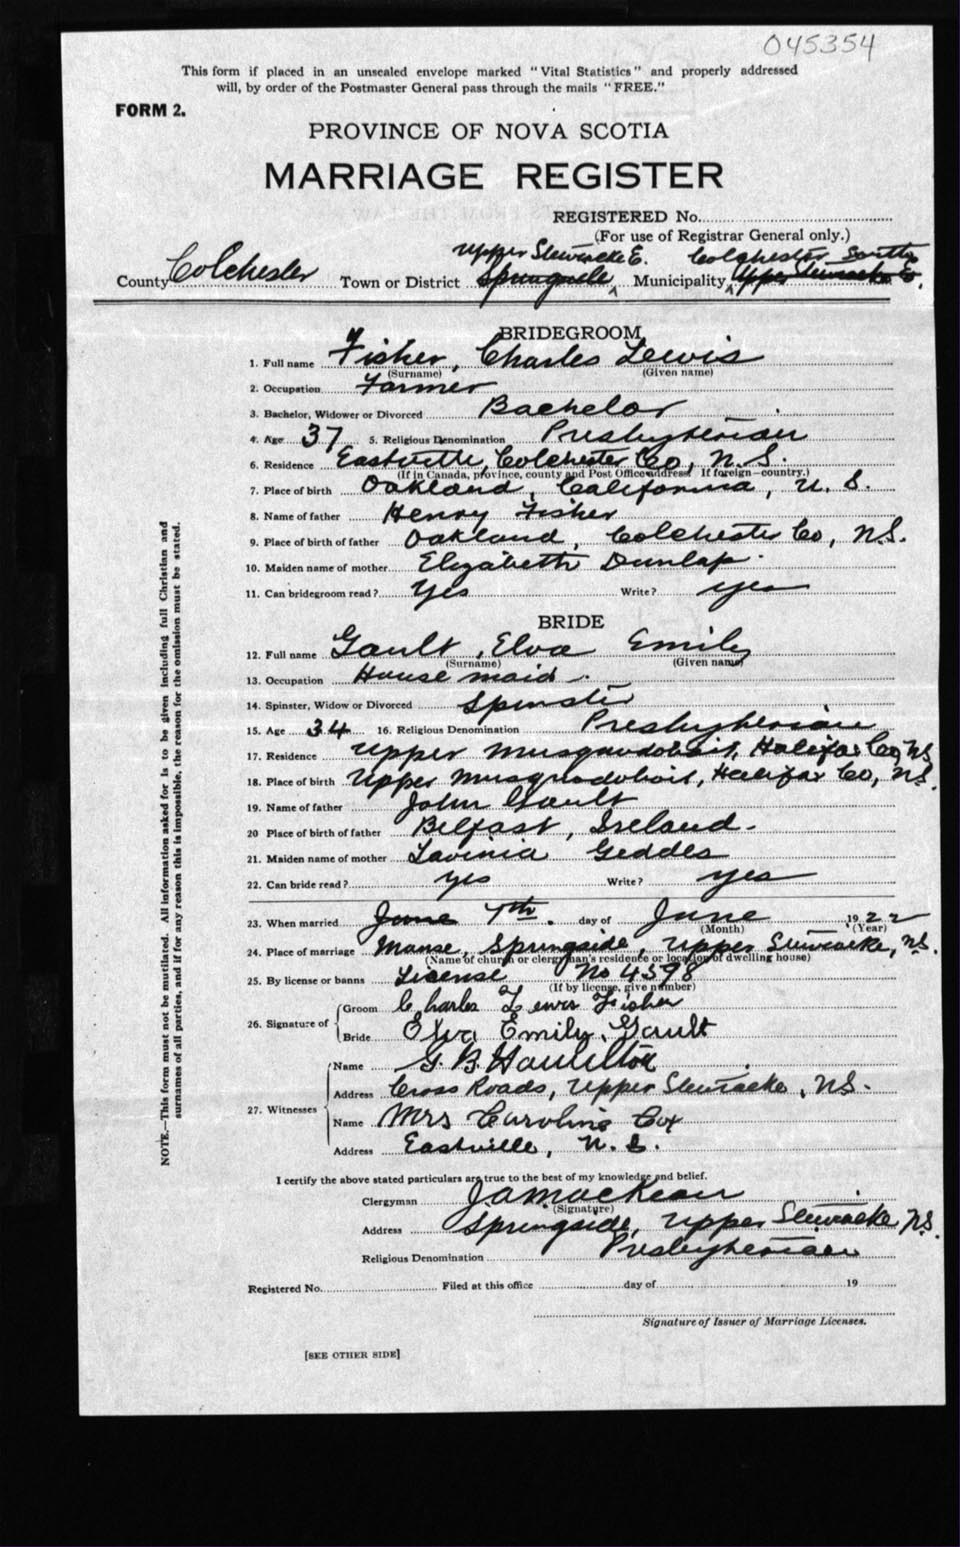 045354
This form if placed in an unsealed envelope marked "Vital Statistics" and properly addressed
will, by order of the Postmaster General pass through the mails "FREE."
FORM 2.
PROVINCE OF NOVA SCOTIA
MARRIAGE REGISTER
REGISTERED No.
(For use of Registrar General only.)
Upper Stewiacke E. Colchester South
County Colchester Town or District Springside Municipality Upper Stewiacke E.
BRIDEGROOM
1. Full name Fisher, Charles Lewis
(Surname) (Given name)
2. Occupation Farmer
3. Bachelor, Widower or Divorced Bachelor
4. Age 37 5. Religious Denomination Presbyterian
6. Residence Eastville, Colchester Co, N.S.
(If in Canada, province, county and Post Office address If foreign—country.)
7. Place of birth Oakland, California, U.S.
8. Name of father Henry Fisher
9. Place of birth of father Oakland, Colchester Co, NS.
10. Maiden name of mother Elizabeth Dunlap
11. Can bridegroom read? Yes Write? yes
BRIDE
12. Full name Gault, Elva Emily
(Surname) (Given name)
13. Occupation House maid
14. Spinster, Widow or Divorced Spinster
15. Age 34 16. Religious Denomination Presbyterian
17. Residence Upper Musquodoboit, Halifax Co, NS
18. Place of birth Upper Musquodoboit, Halifax Co, NS.
19. Name of father John Gault
20 Place of birth of father Belfast, Ireland.
21. Maiden name of mother Lavinia Geddes
22. Can bride read? yes Write? yes
23. When married June 7th. day of June 1922
(Month) (Year)
24. Place of marriage Manse, Springside, Upper Stewiacke, NS.
(Name of church or clergyman's residence or location of dwelling house)
25. By license or banns License No 4598
(If by license, give number)
26. Signature of Groom Charles Lewis Fisher
Bride Elva Emily Gault
27. Witnesses Name G. B. Hamilton
Address Cross Roads, Upper Stewiacke, NS.
Name Mrs Caroline Cox
Address Eastville, N.S.
I certify the above stated particulars are true to the best of my knowledge and belief.
Clergyman J A MacKean
(Signature)
Address Springside, Upper Stewiacke NS.
Religious Denomination Presbyterian
Registered No. Filed at this office day of 19
Signature of Issuer of Marriage Licenses.
[SEE OTHER SIDE]
NOTE.—This form must not be mutilated. All information asked for is to be given including full Christian and
surnames of all parties, and if for any reason this is impossible, the reason for the omission must be stated.